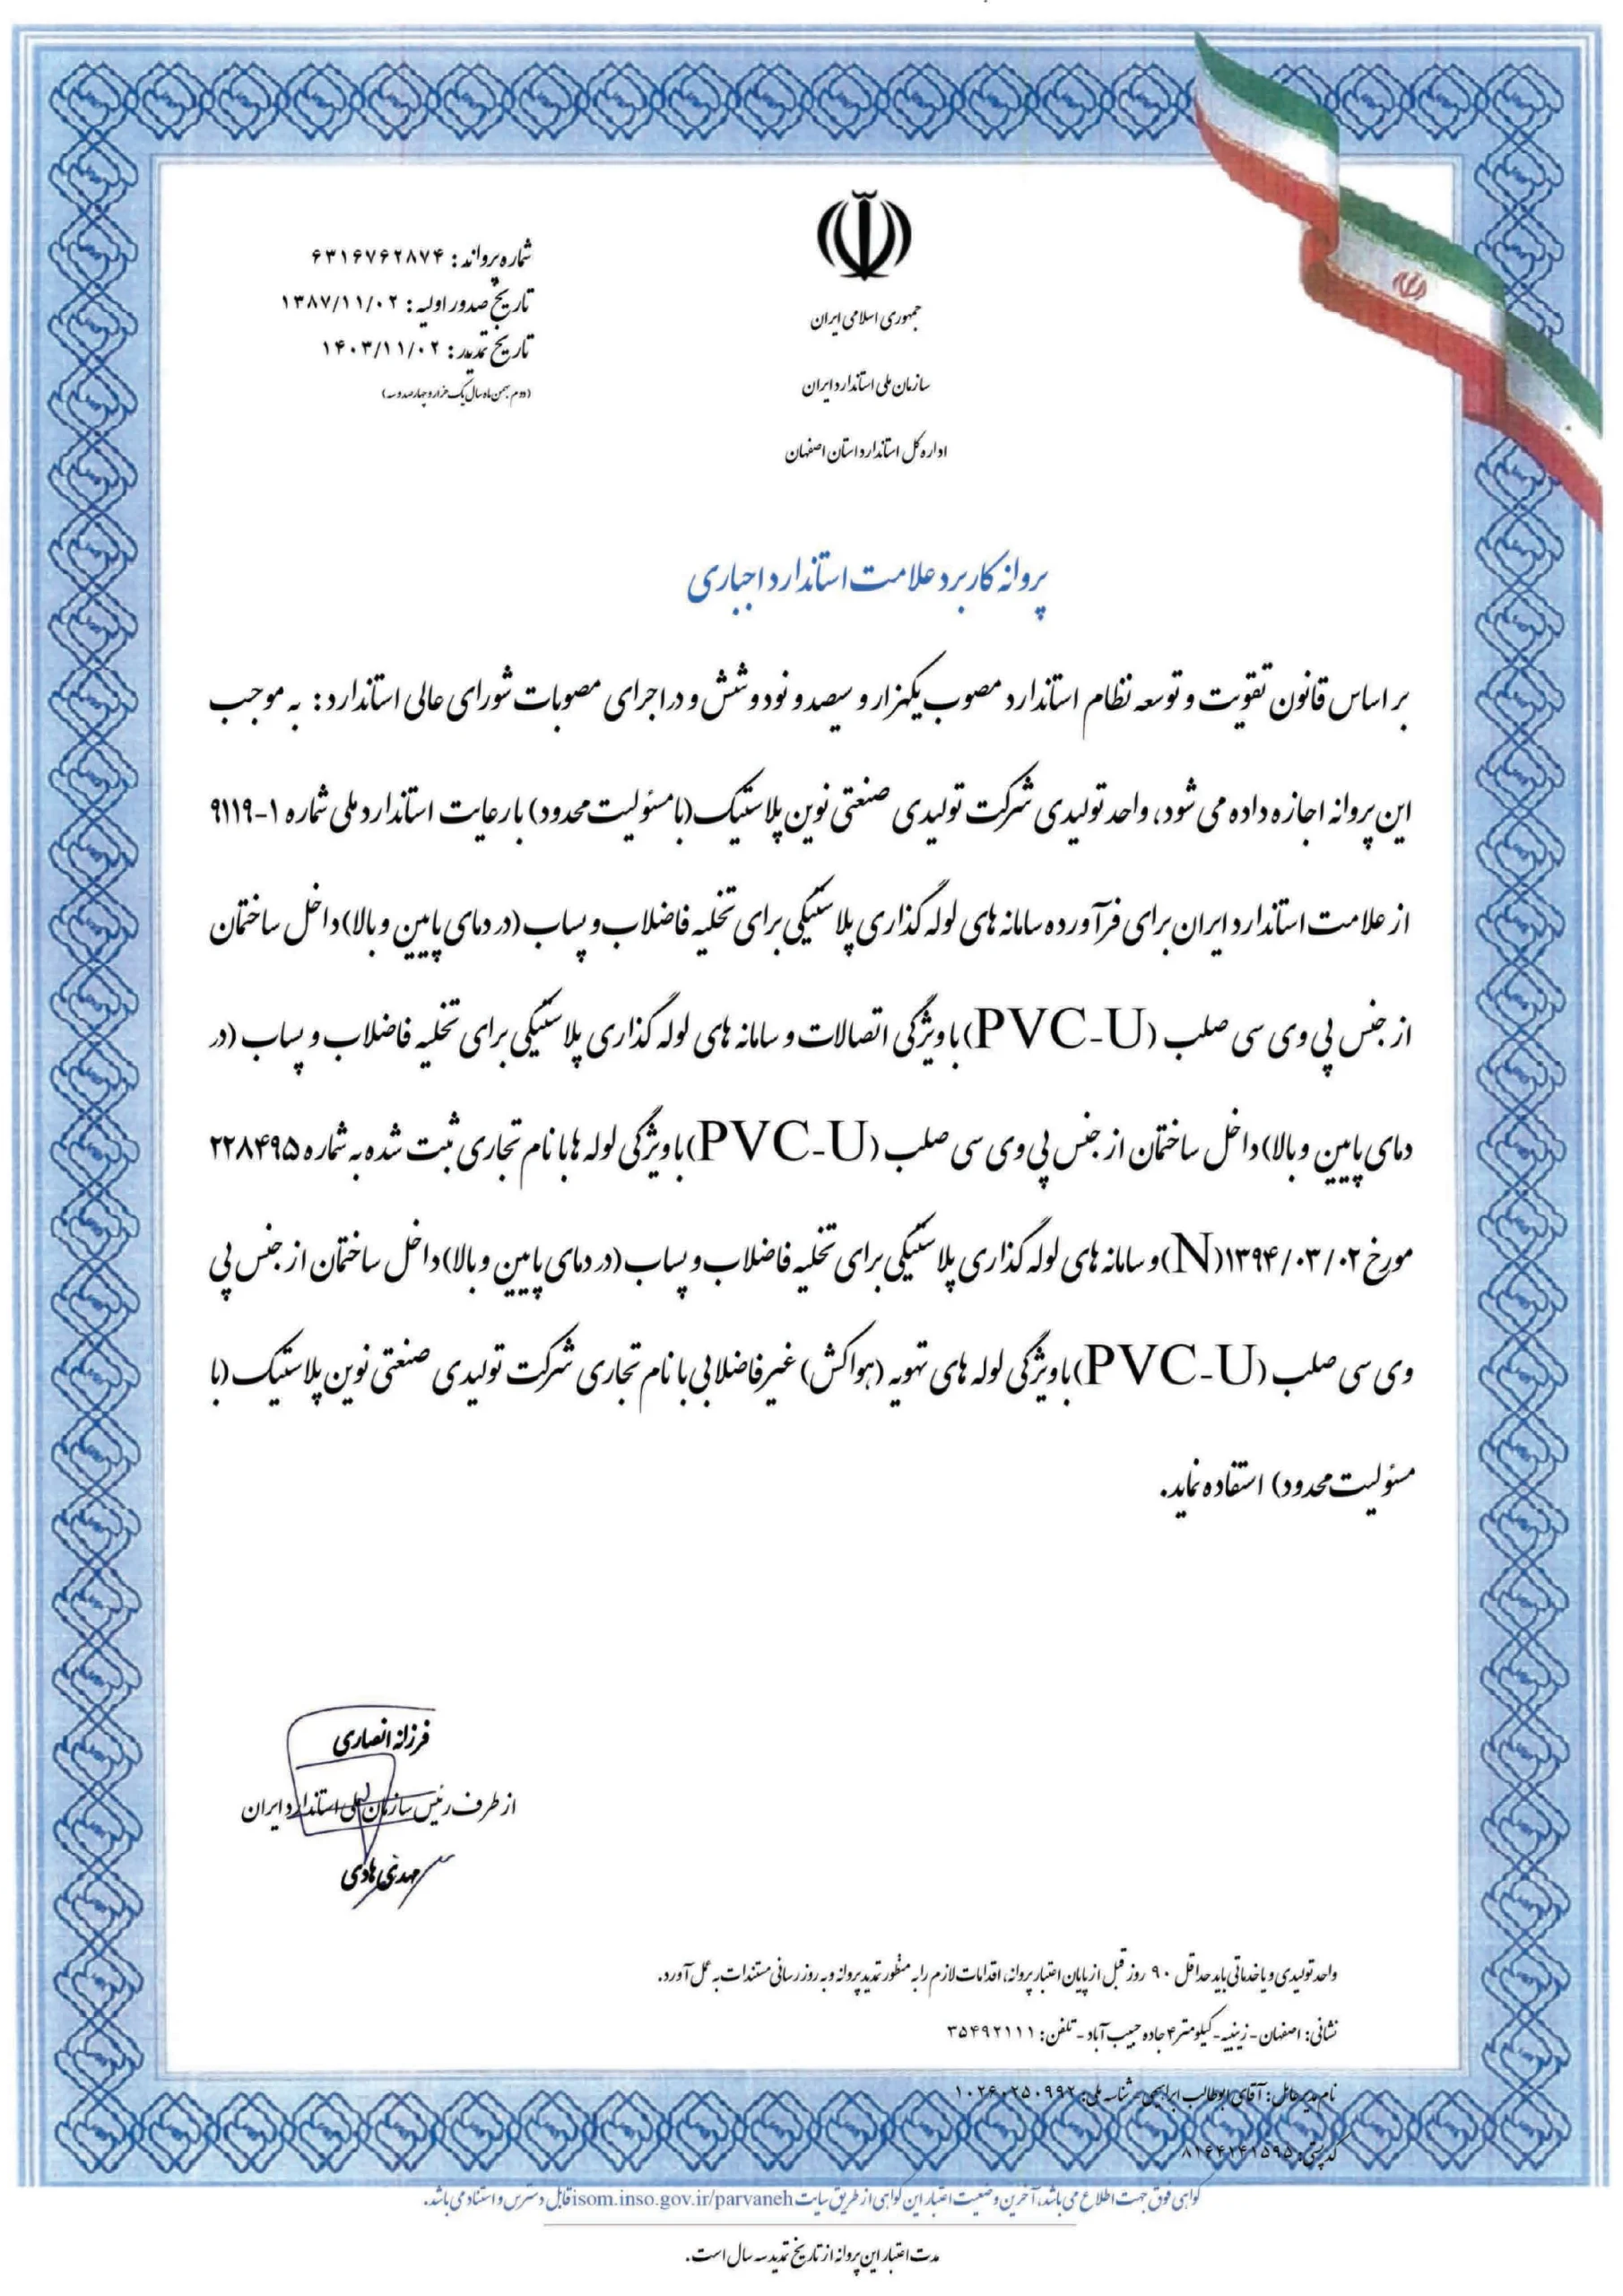 جمهوری اسلامی ایران
سازمان ملی استاندارد ایران
اداره کل استاندارد استان اصفهان
شماره پروانه : ۶۳۱۶۷۶۲۸۷۴
تاریخ صدور اولیه : ۱۳۸۷/۱۱/۰۲
تاریخ تمدید : ۱۴۰۳/۱۱/۰۲
(دوم بهمن ماه سال یک هزار و چهارصد و سه)
پروانه کاربرد علامت استاندارد اجباری
بر اساس قانون تقویت و توسعه نظام استاندارد مصوب یکهزار و سیصد و نود و شش و در اجرای مصوبات شورای عالی استاندارد : به موجب
این پروانه اجازه داده می شود، واحد تولیدی شرکت تولیدی صنعتی نوین پلاستیک (با مسئولیت محدود) با رعایت استاندارد ملی شماره ۱-۹۱۱۹
از علامت استاندارد ایران برای فرآورده سامانه های لوله گذاری پلاستیکی برای تخلیه فاضلاب و پساب (در دمای پایین و بالا) داخل ساختمان
از جنس پی وی سی صلب (PVC-U) با ویژگی اتصالات و سامانه های لوله گذاری پلاستیکی برای تخلیه فاضلاب و پساب (در
دمای پایین و بالا) داخل ساختمان از جنس پی وی سی صلب (PVC-U) با ویژگی لوله ها با نام تجاری ثبت شده به شماره ۲۲۸۴۹۵
مورخ ۱۳۹۴/۰۳/۰۲ (N) و سامانه های لوله گذاری پلاستیکی برای تخلیه فاضلاب و پساب (در دمای پایین و بالا) داخل ساختمان از جنس پی
وی سی صلب (PVC-U) با ویژگی لوله های تهویه (هواکش) غیرفاضلابی با نام تجاری شرکت تولیدی صنعتی نوین پلاستیک (با
مسئولیت محدود) استفاده نماید.
فرزانه انصاری
از طرف رئیس سازمان ملی استاندارد ایران
مهدی هادی
واحد تولیدی و یا خدماتی باید حداقل ۹۰ روز قبل از پایان اعتبار پروانه، اقدامات لازم را به منظور تمدید پروانه و به روز رسانی مستندات به عمل آورد.
نشانی: اصفهان - زینبیه - کیلومتر ۴ جاده حبیب آباد - تلفن: ۳۵۴۹۲۱۱۱
نام مدیرعامل : آقای ابوطالب ابراهیمی - شناسه ملی: ۱۰۲۶۰۲۵۰۹۹۲
کد پستی: ۸۱۶۴۲۴۱۵۹۵
گواهی فوق جهت اطلاع می باشد، آخرین وضعیت اعتبار این گواهی از طریق سایت isom.inso.gov.ir/parvaneh قابل دسترس و استناد می باشد.
مدت اعتبار این پروانه از تاریخ تمدید سه سال است.